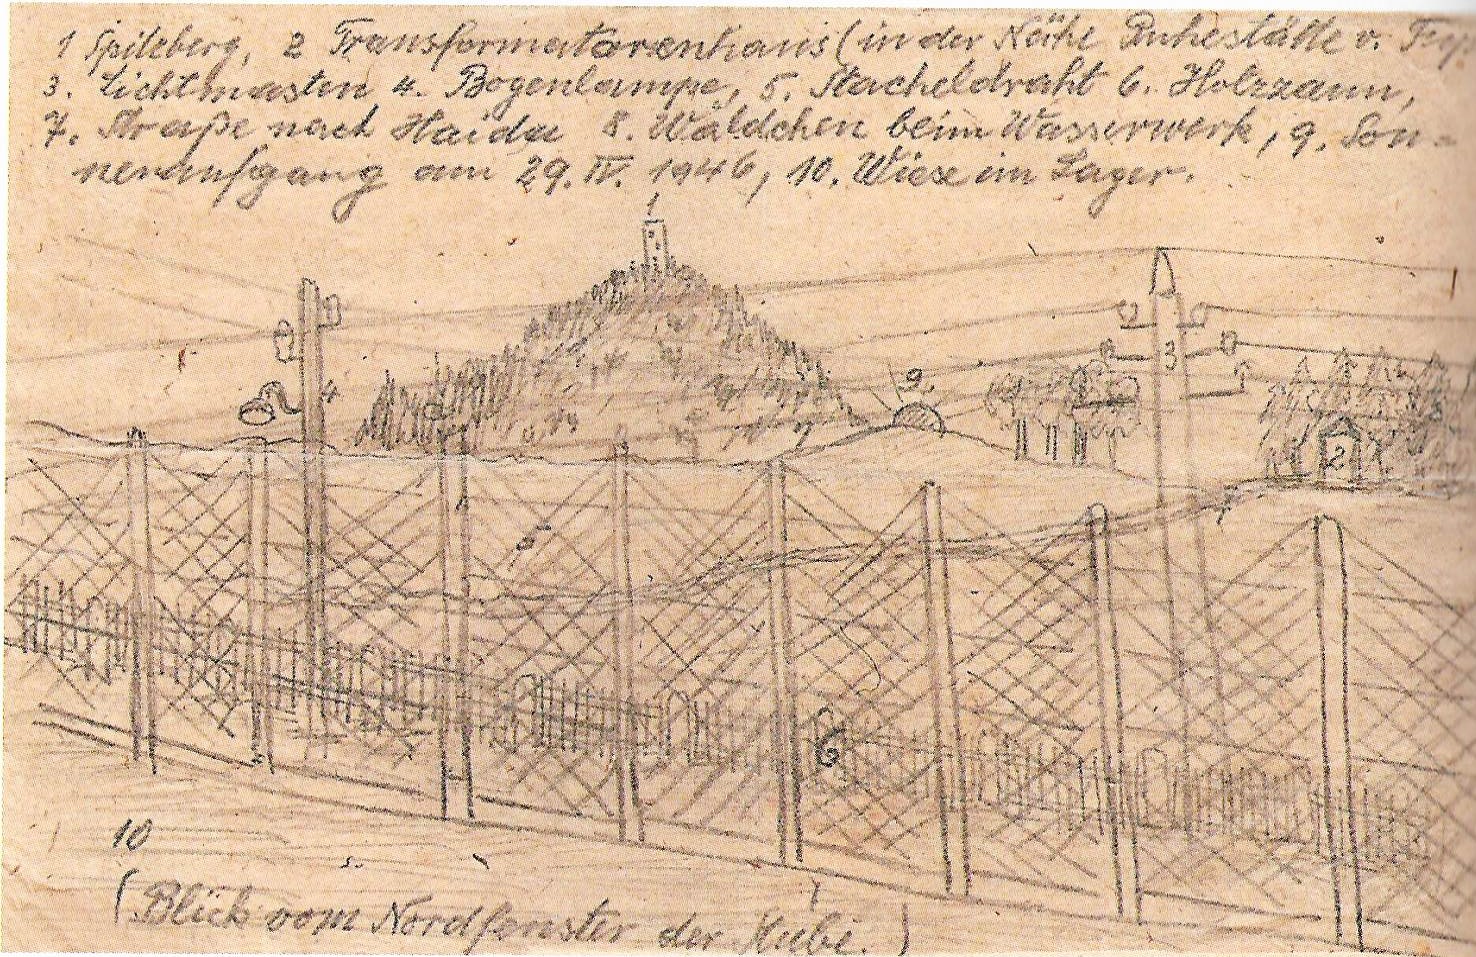 1 Spitzberg, 2 Transformatorenhaus (in der Nähe Ruhestätte v.
3. Lichtmasten 4. Bogenlampe, 5. Stacheldraht 6. Holzzaun,
7. Straße nach Haida 8. Wäldchen beim Wasserwerk, 9. Son-
nenaufgang am 29. IV. 1946, 10. Wiese im Lager.
1
9.
4
3
2
5
7
6
10
(Blick vom Nordfenster der Stube.)